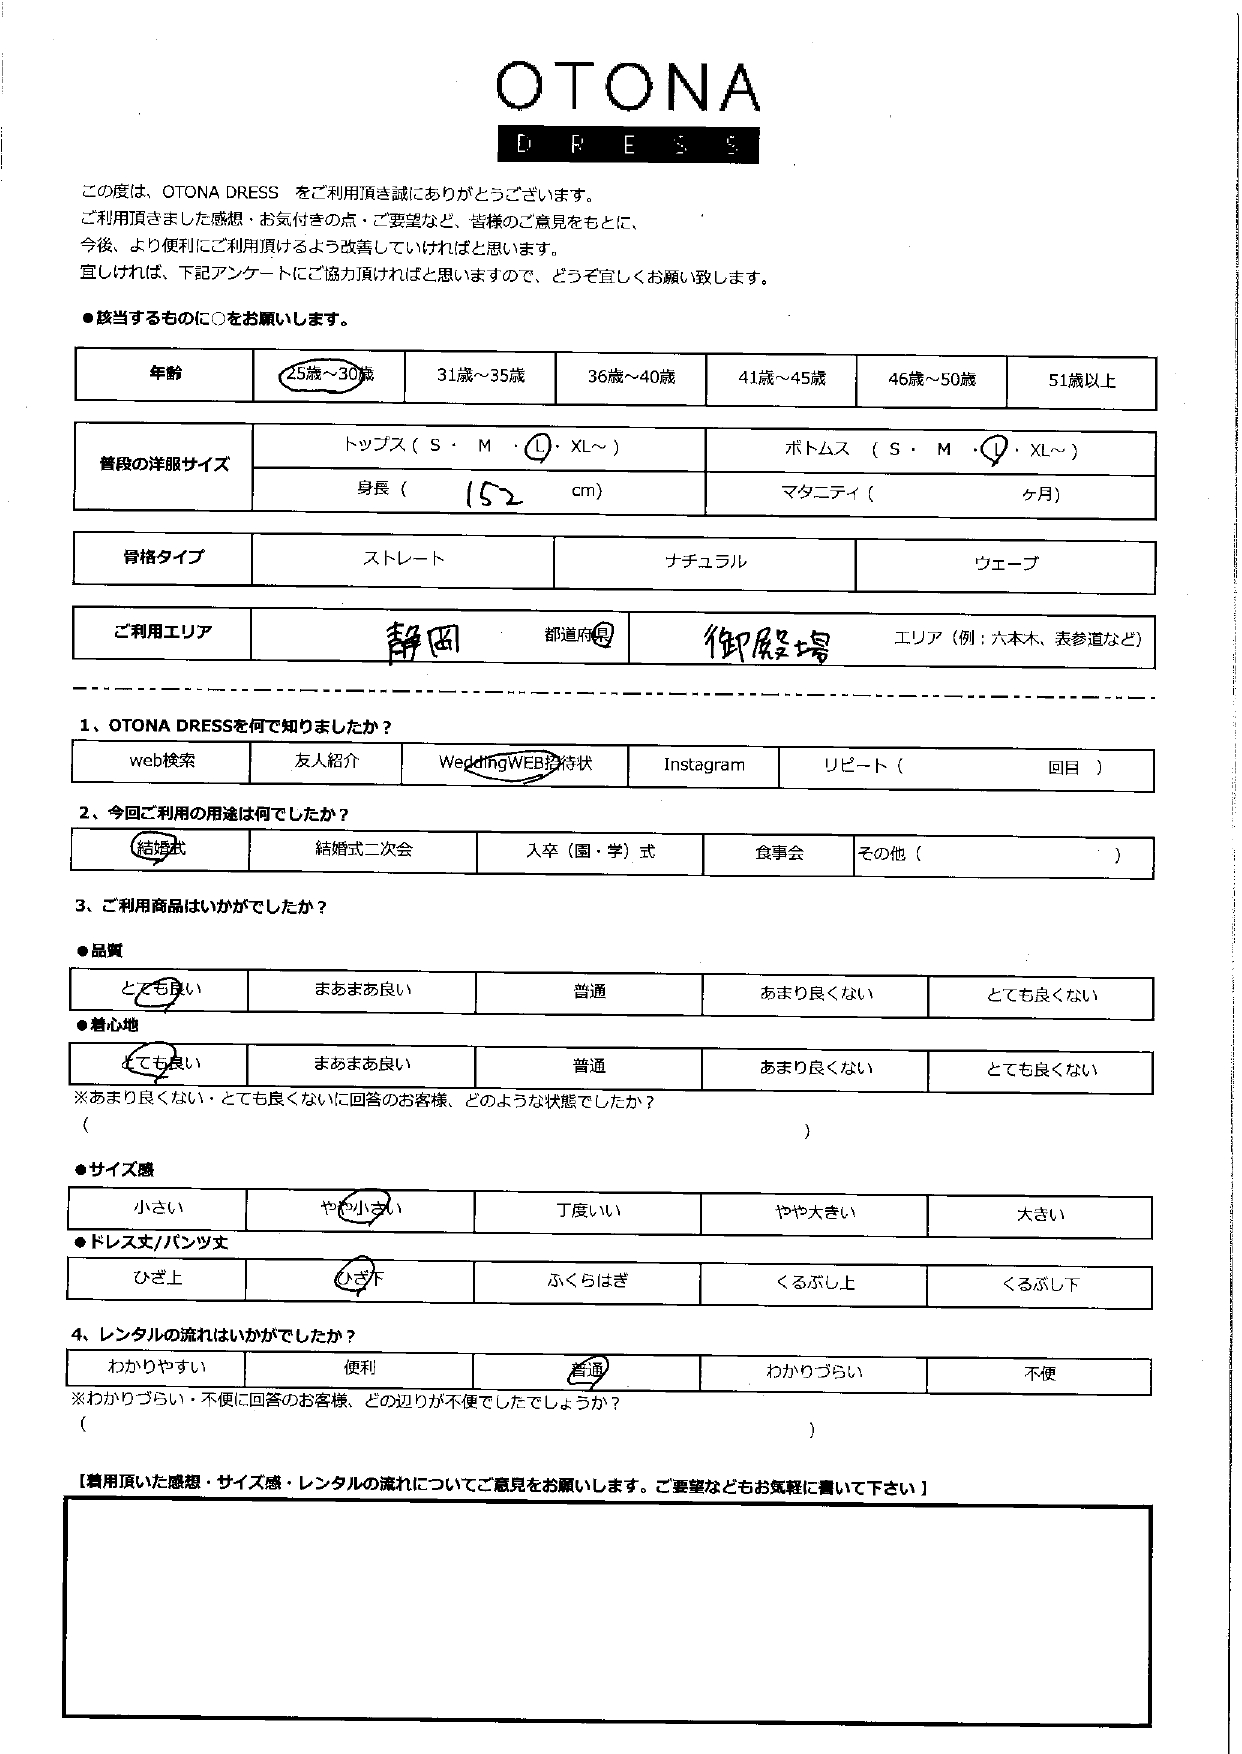 OTONA
DRESS
この度は、OTONA DRESS　をご利用頂き誠にありがとうございます。
ご利用頂きました感想・お気付きの点・ご要望など、皆様のご意見をもとに、
今後、より便利にご利用頂けるよう改善していければと思います。
宜しければ、下記アンケートにご協力頂ければと思いますので、どうぞ宜しくお願い致します。
●該当するものに○をお願いします。
年齢 25歳～30歳 31歳～35歳 36歳～40歳 41歳～45歳 46歳～50歳 51歳以上
普段の洋服サイズ
トップス ( S ・ M ・ L ・ XL～ ) ボトムス ( S ・ M ・ L ・ XL～ )
身長 ( 152 cm) マタニティ ( ヶ月)
骨格タイプ ストレート ナチュラル ウェーブ
ご利用エリア 静岡 都道府県 御殿場 エリア（例：六本木、表参道など）
1、OTONA DRESSを何で知りましたか？
web検索 友人紹介 WeddingWEB招待状 Instagram リピート ( 回目 )
2、今回ご利用の用途は何でしたか？
結婚式 結婚式二次会 入卒（園・学）式 食事会 その他 ( )
3、ご利用商品はいかがでしたか？
●品質
とても良い まあまあ良い 普通 あまり良くない とても良くない
●着心地
とても良い まあまあ良い 普通 あまり良くない とても良くない
※あまり良くない・とても良くないに回答のお客様、どのような状態でしたか？
( )
●サイズ感
小さい やや小さい 丁度いい やや大きい 大きい
●ドレス丈/パンツ丈
ひざ上 ひざ下 ふくらはぎ くるぶし上 くるぶし下
4、レンタルの流れはいかがでしたか？
わかりやすい 便利 普通 わかりづらい 不便
※わかりづらい・不便に回答のお客様、どの辺りが不便でしたでしょうか？
( )
【着用頂いた感想・サイズ感・レンタルの流れについてご意見をお願いします。ご要望などもお気軽に書いて下さい】